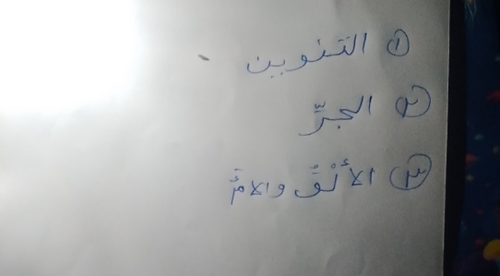 ① التنوين
② الجرِّ
③ الألْفُ والامُ